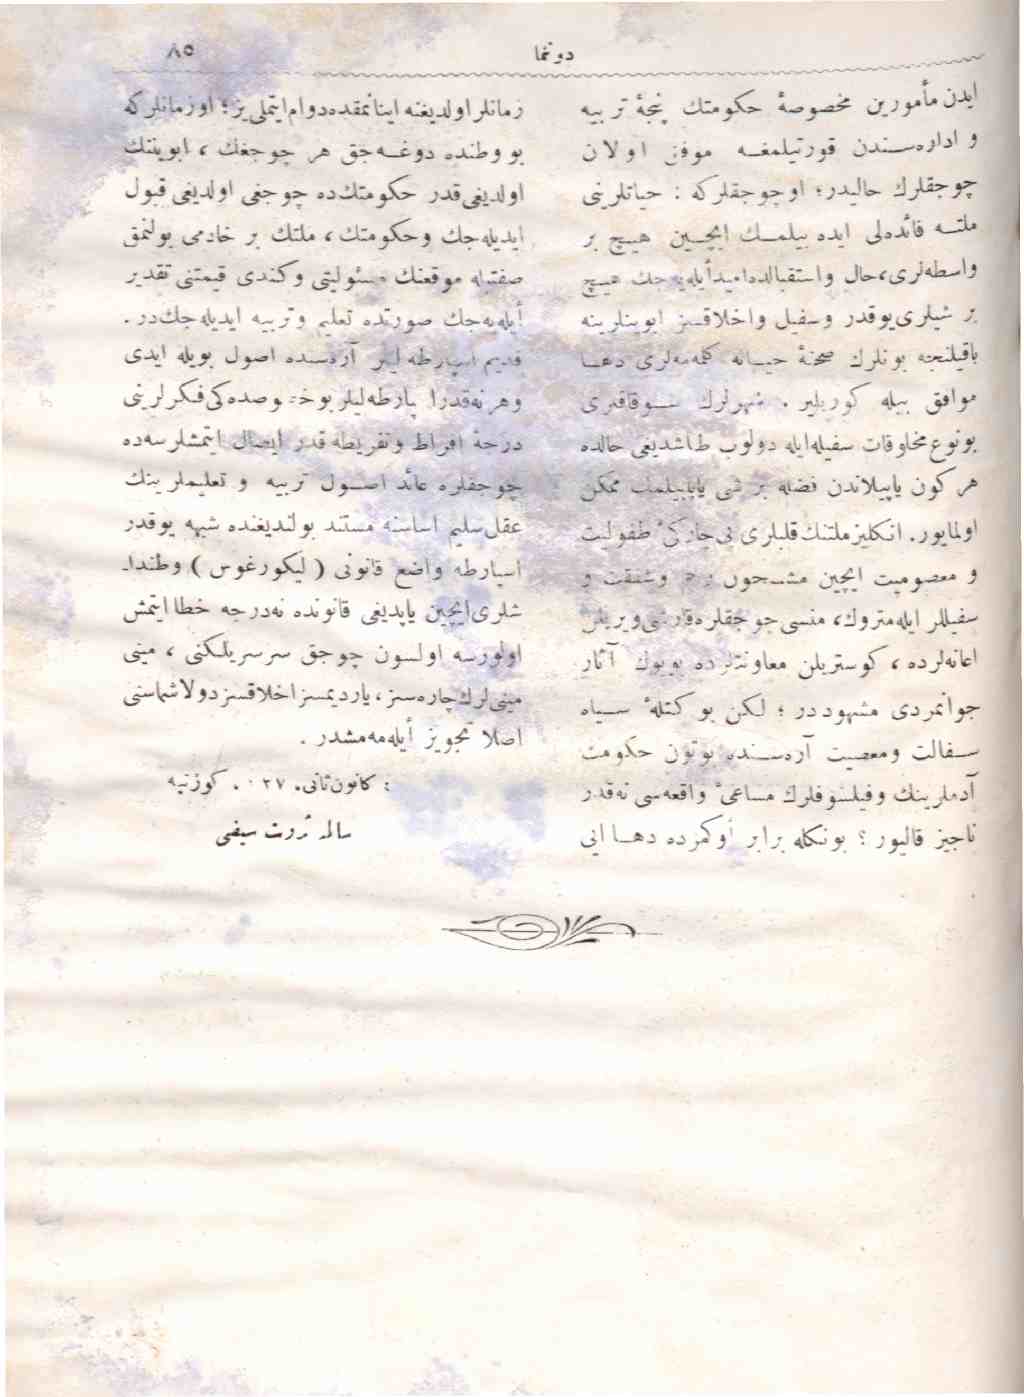 دوننما
٨٥
ایدن مأمورین مخصوصهٔ حکومتك پنجهٔ تربیه
و اداره‌سندن قورتیلمغه موفق اولان
چوجقلرك حالیدر؛ اوچوجقلرکه : حیاتلرینی
ملته فائده‌لی ایده بیلمك ایچین هیچ بر
واسطه‌لری، حال واستقبالده هیچ
بر شیلری یوقدر وسفیل واخلاقسز ابوینلرینه
باقیلنجه بونلرك صحنهٔ حیاته کلمه‌مه‌لری دها
موافق بیله کوریلیر . شهرلرك سوقاقلری
بونوع مخلوقات سفیله‌ایله دولوب طاشدیغی حالده
هر کون یاپیلاندن فضله بر شی یاپیلمق ممکن
اولمایور. انکلیز ملتنك قلبلری بی‌چارکئ طفولیت
و معصومیت ایچین مشحون وشفقت و
سفیللر ایله متروك، منسی چوجقلره قارشی ویریلن
اعانه‌لرده ، کوستریلن معاونتلرده بویوك آثار
جوانمردی مشهوددر ؛ لکن بو کتلهٔ سیاه
سفالت ومعصیت آره‌سنده بوتون حکومت
آدملرینك وفیلسوفلرك مساعئ واقعه‌سی نه‌قدر
ناچیز قالیور ؟ بونکله برابر اوکمزده دها ایی
زمانلر اولدیغنه اینانمقده دوام ایتملی‌یز؛ او زمانلرکه
بو وطنده دوغه‌جق هر چوجغك ، ابویننك
اولدیغی قدر حکومتك‌ده چوجغی اولدیغی قبول
ایدیله‌جك وحکومتك، ملتك بر خادمی بولنمق
صفتیله موقعنك مسئولیتی وکندی قیمتنی تقدیر
ایلیه‌جك صورتده تعلیم وتربیه ایدیله‌جك‌در .
قدیم اسپارطه‌لیلر آره‌سنده اصول بویله ایدی
وهر نه‌قدر اسپارطه‌لیلر بو خصوصده‌کی فکرلرینی
درجهٔ افراط وتفریطه قدر ایصال ایتمشلرسه‌ده
چوجقلره عائد اصول تربیه و تعلیملرینك
عقل سلیم اساسنه مستند بولندیغنده شبهه یوقدر
اسپارطه واضع قانونی ( لیکورغوس ) وطندا-
شلری ایچین یاپدیغی قانونده نه‌درجه خطا ایتمش
اولورسه اولسون چوجق سرسریلکنی ، مینی
مینی‌لرك چاره‌سز ، یاردیمسز اخلاقسز دولاشماسنی
اصلا تجویز ایله‌مه‌مشدر .
کانون ثانی. ٣٢٧ . کوزتپه
ثروت سیفی